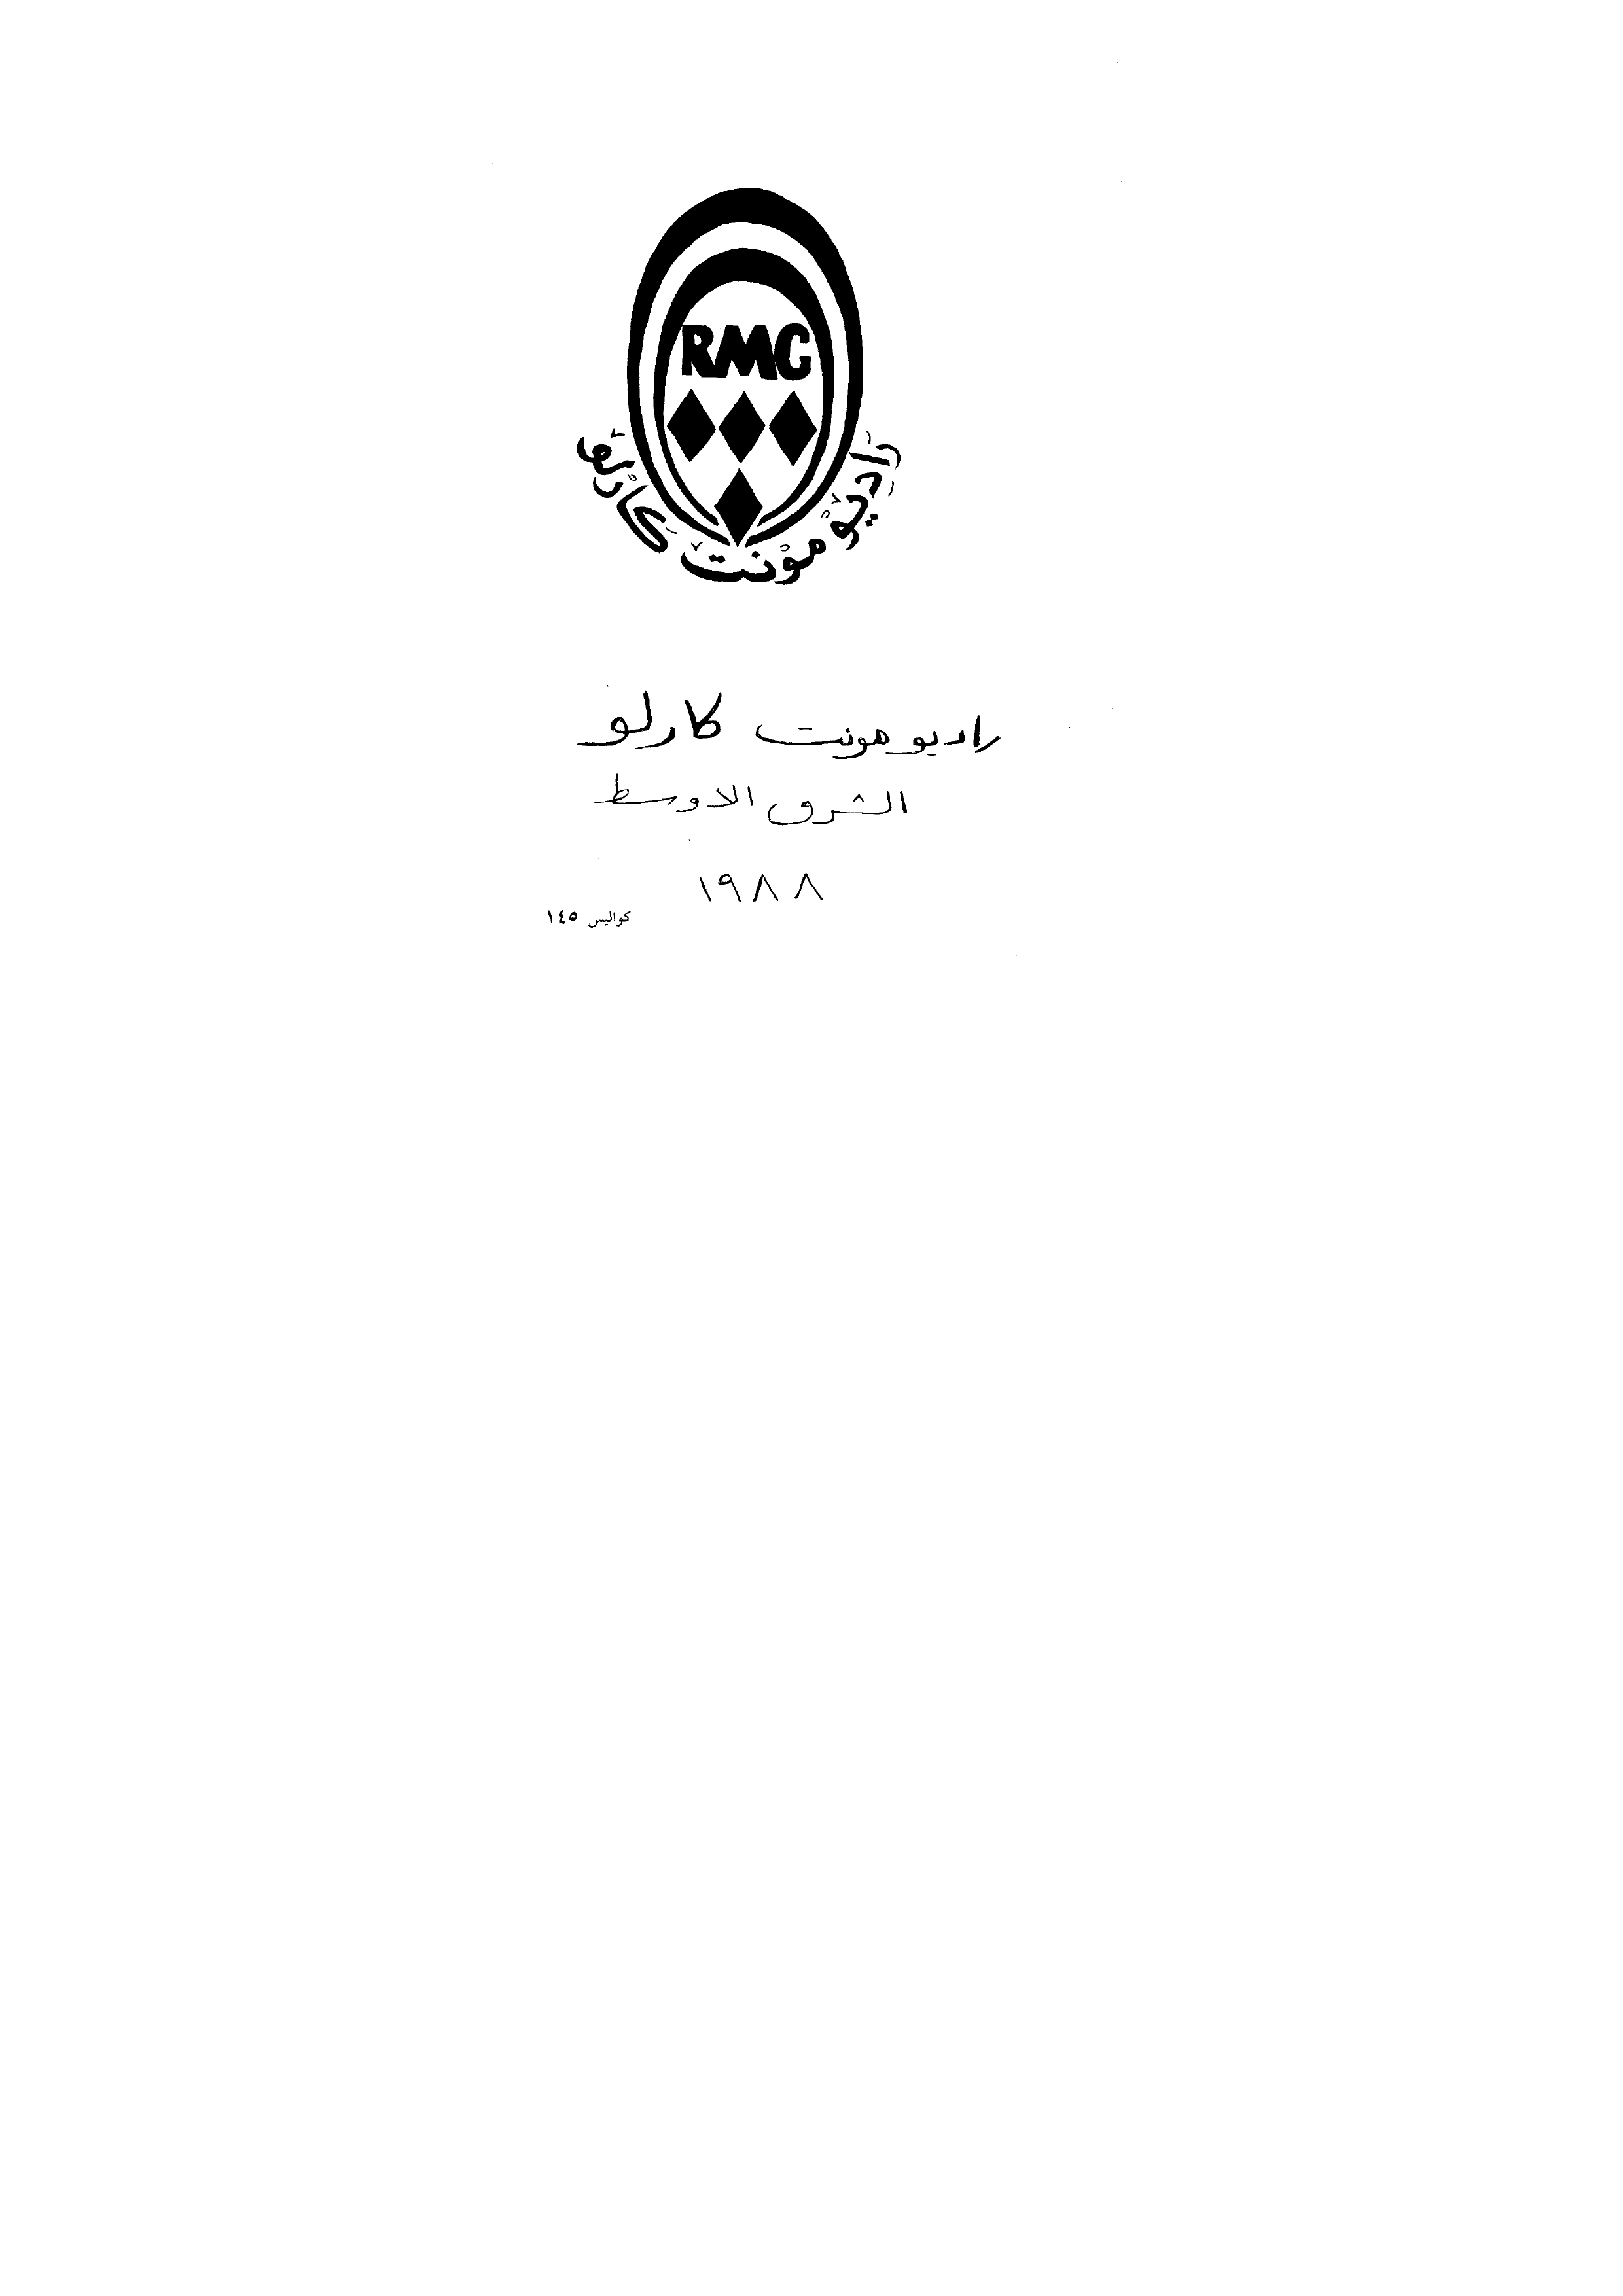 RMC
راديو مونت كارلو
راديو مونت كارلو
الشرق الاوسط
١٩٨٨
كواليس ١٤٥